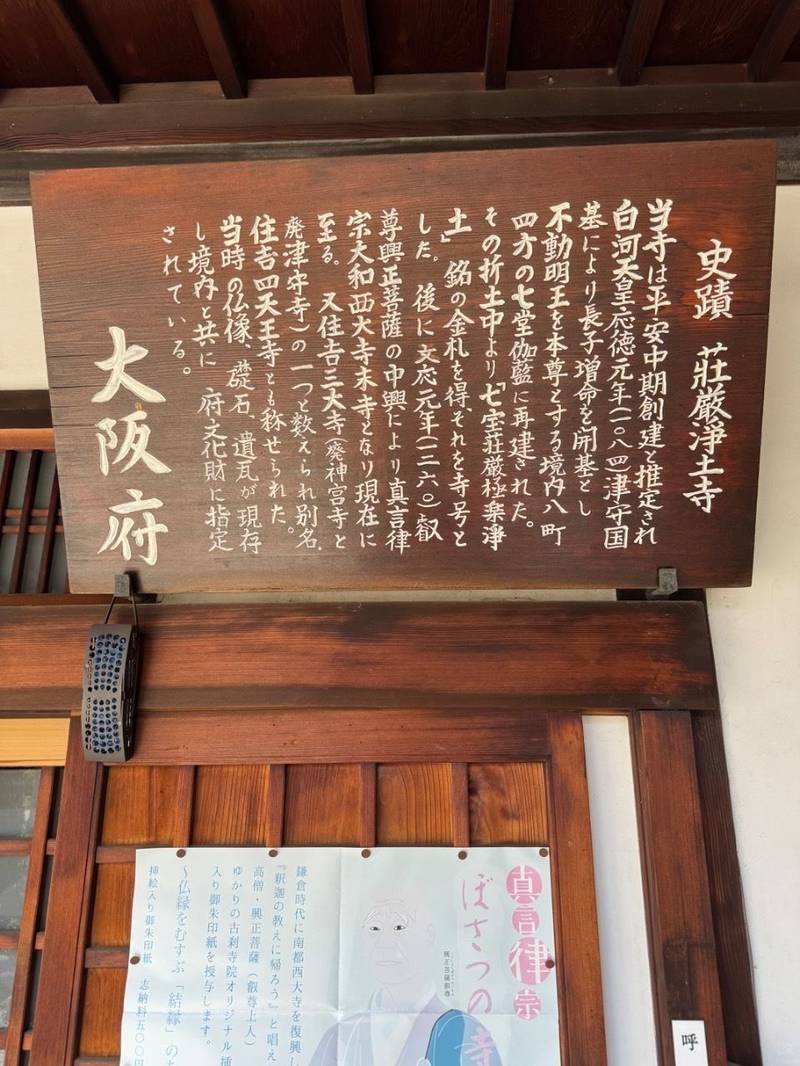 史蹟 莊厳淨土寺
当寺は平安中期創建と推定され
白河天皇応徳元年(一〇八四)津守国
基により長子増命を開基とし
不動明王を本尊とする境内八町
四方の七堂伽藍に再建された。
その折土中より「七宝莊厳極楽淨
土」銘の金札を得、それを寺号と
した。後に文応元年(一二六〇)叡
尊興正菩薩の中興により真言律
宗大和西大寺末寺となり現在に
至る。又住吉三大寺(廃神宮寺と
廃津守寺)の一つと数えられ別名、
住吉四天王寺とも称せられた。
当時の仏像、礎石、遺瓦が現存
し境内と共に 府文化財に指定
されている。
大阪府
真言律宗
ぼさつの寺
興正菩薩叡尊
鎌倉時代に南都西大寺を復興し
『釈迦の教えに帰ろう』と唱え
高僧・興正菩薩(叡尊上人)
ゆかりの古刹寺院オリジナル挿
入り御朱印紙を授与します。
～仏縁をむすぶ「結縁」の
挿絵入り御朱印紙 志納料五〇〇円
呼